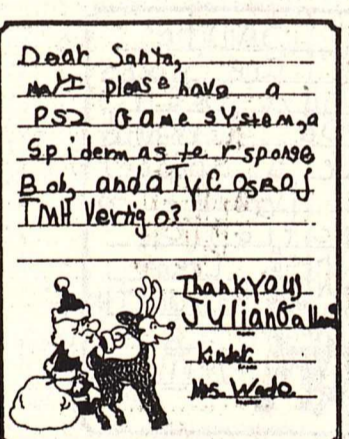 Dear Santa,
may I please have a
PS2 Game system, a
Spiderm as te r sponge
Bob, and a Ty C
Vertigo?
Thankyou
Julian
Kinder.
Mrs. Wade